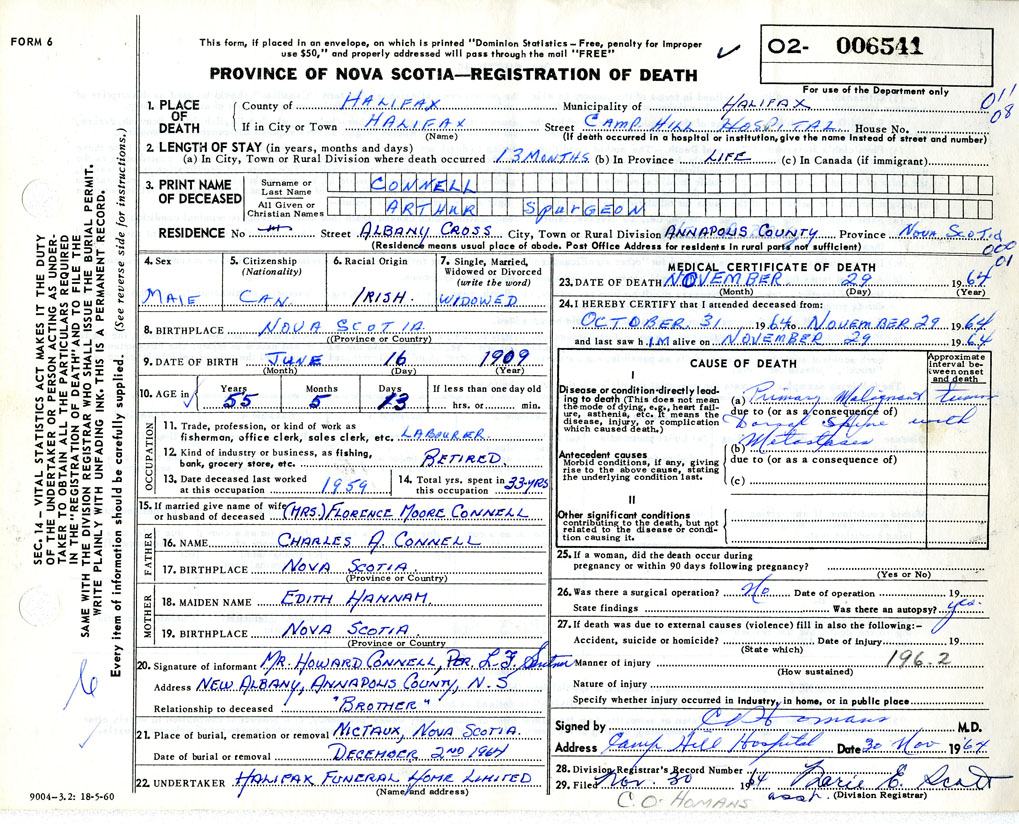 FORM 6
This form, if placed in an envelope, on which is printed "Dominion Statistics – Free, penalty for improper
use $50," and properly addressed will pass through the mail "FREE"
O2- 006541
PROVINCE OF NOVA SCOTIA—REGISTRATION OF DEATH
For use of the Department only
011
08
1. PLACE OF DEATH
County of HALIFAX Municipality of HALIFAX
If in City or Town HALIFAX Street CAMP HILL HOSPITAL House No.
(Name) (If death occurred in a hospital or institution, give the name instead of street and number)
2. LENGTH OF STAY (in years, months and days)
(a) In City, Town or Rural Division where death occurred 13 MONTHS (b) In Province LIFE (c) In Canada (if immigrant)
3. PRINT NAME OF DECEASED
Surname or Last Name CONNELL
All Given or Christian Names ARTHUR SPURGEON
RESIDENCE No Street ALBANY CROSS City, Town or Rural Division ANNAPOLIS COUNTY Province NOVA SCOTIA
(Residence means usual place of abode. Post Office Address for residents in rural parts not sufficient)
000
01
4. Sex
MALE
5. Citizenship
(Nationality)
CAN.
6. Racial Origin
IRISH.
7. Single, Married,
Widowed or Divorced
(write the word)
WIDOWED
8. BIRTHPLACE NOVA SCOTIA
(Province or Country)
9. DATE OF BIRTH JUNE 16 1909
(Month) (Day) (Year)
10. AGE in
Years Months Days If less than one day old
55 5 13 hrs. or min.
OCCUPATION
11. Trade, profession, or kind of work as
fisherman, office clerk, sales clerk, etc. LABOURER.
12. Kind of industry or business, as fishing,
bank, grocery store, etc. RETIRED.
13. Date deceased last worked
at this occupation 1959
14. Total yrs. spent in
this occupation 33-YRS
15. If married give name of wife
or husband of deceased (MRS.) FLORENCE MOORE CONNELL
FATHER
16. NAME CHARLES A. CONNELL
17. BIRTHPLACE NOVA SCOTIA
(Province or Country)
MOTHER
18. MAIDEN NAME EDITH HANNAM.
19. BIRTHPLACE NOVA SCOTIA.
(Province or Country)
20. Signature of informant MR. HOWARD CONNELL, PER. L.F.
Address NEW ALBANY, ANNAPOLIS COUNTY, N.S
Relationship to deceased "BROTHER"
21. Place of burial, cremation or removal NICTAUX, NOVA SCOTIA.
Date of burial or removal DECEMBER 2ND 1964
22. UNDERTAKER HALIFAX FUNERAL HOME LIMITED
(Name and address)
9004-3.2: 18-5-60
MEDICAL CERTIFICATE OF DEATH
23. DATE OF DEATH NOVEMBER 29 1964
(Month) (Day) (Year)
24. I HEREBY CERTIFY that I attended deceased from:
OCTOBER 31 1964 to NOVEMBER 29 1964
and last saw h IM alive on NOVEMBER 29 1964
CAUSE OF DEATH
Approximate
interval be-
tween onset
and death
I
Disease or condition directly lead-
ing to death (This does not mean
the mode of dying, e.g., heart fail-
ure, asthenia, etc. It means the
disease, injury, or complication
which caused death.)
(a) Primary Malignant tumor
due to (or as a consequence of)
Dorsal Spine with
(b) Metastases
due to (or as a consequence of)
(c)
Antecedent causes
Morbid conditions, if any, giving
rise to the above cause, stating
the underlying condition last.
II
Other significant conditions
contributing to the death, but not
related to the disease or condi-
tion causing it.
25. If a woman, did the death occur during
pregnancy or within 90 days following pregnancy?
(Yes or No)
26. Was there a surgical operation? No Date of operation 19
State findings Was there an autopsy? yes.
27. If death was due to external causes (violence) fill in also the following:-
Accident, suicide or homicide? Date of injury 19
(State which)
Manner of injury 196.2
(How sustained)
Nature of injury
Specify whether injury occurred in Industry, in home, or in public place
Signed by C O Homans M.D.
Address Camp Hill Hospital Date 30 Nov 1964
28. Division Registrar's Record Number
29. Filed Nov. 30 1964 Marie E. Scott
asst. (Division Registrar)
C. O. HOMANS
SEC. 14 – VITAL STATISTICS ACT MAKES IT THE DUTY
OF THE UNDERTAKER OR PERSON ACTING AS UNDER-
TAKER TO OBTAIN ALL THE PARTICULARS REQUIRED
IN THE "REGISTRATION OF DEATH" AND TO FILE THE
SAME WITH THE DIVISION REGISTRAR WHO SHALL ISSUE THE BURIAL PERMIT.
WRITE PLAINLY WITH UNFADING INK-THIS IS A PERMANENT RECORD.
Every item of information should be carefully supplied. (See reverse side for instructions.)